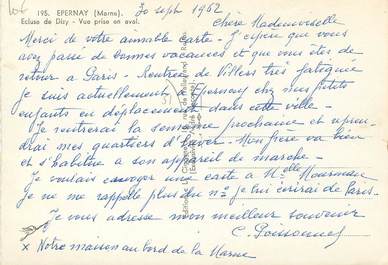 195. EPERNAY (Marne).
Ecluse de Dizy - Vue prise en aval.
30 sept 1962
Chère Mademoiselle
Merci de votre aimable carte - J'espère que vous
avez passé de bonnes vacances et que vous êtes de
retour à Paris - Rentrée de Villers très fatiguée
je suis actuellement à Epernay chez mes petits
enfants en déplacement dans cette ville -
Je rentrerai la semaine prochaine et repren-
drai mes quartiers d'hiver - Mon frère va bien
et s'habitue à son appareil de marche -
Je voulais envoyer une carte à Melle
je ne me rappelle plus du n° je lui écrirai de Paris.
Je vous adresse mon meilleur souvenir
C. Poissonnet
x Notre maison au bord de la Marne